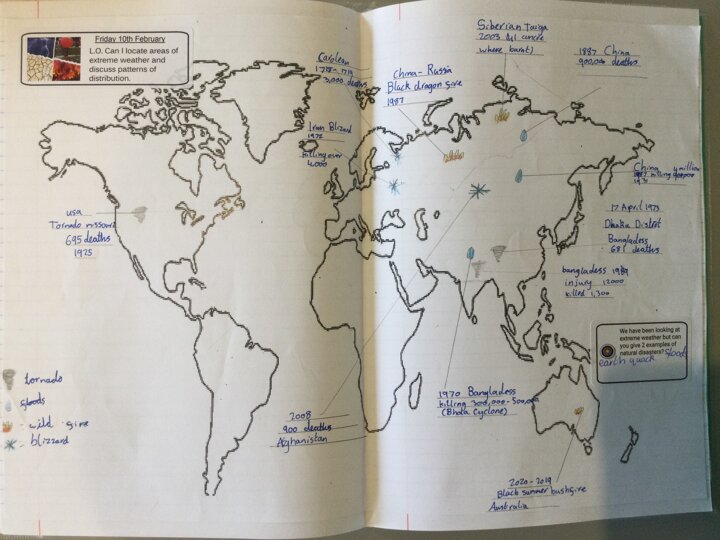 Friday 10th February
L.O. Can I locate areas of
extreme weather and
discuss patterns of
distribution.
Carolean
3,000 deaths
Iran Blizard
1972
killing over
4,000
China-Russia
Black dragon fire
1987
Siberian Taiga
2003
where burnt)
1887 China
900,000 deaths
China 4 million
1931
17 April 1973
Dhaka District
Bangladess
681 deaths
bangladess 1989
injury 12000
killed 1,300
usa
Tornado missouri
695 deaths
1925
We have been looking at
extreme weather but can
you give 2 examples of
natural disasters? floods
earth quack
tornado
floods
wild fire
blizzard
2008
900 deaths
Afghanistan
1970 Bangladess
killing 300,000-500,000
(Bhola Cyclone)
2020-2019
Black summer bushfire
Australia